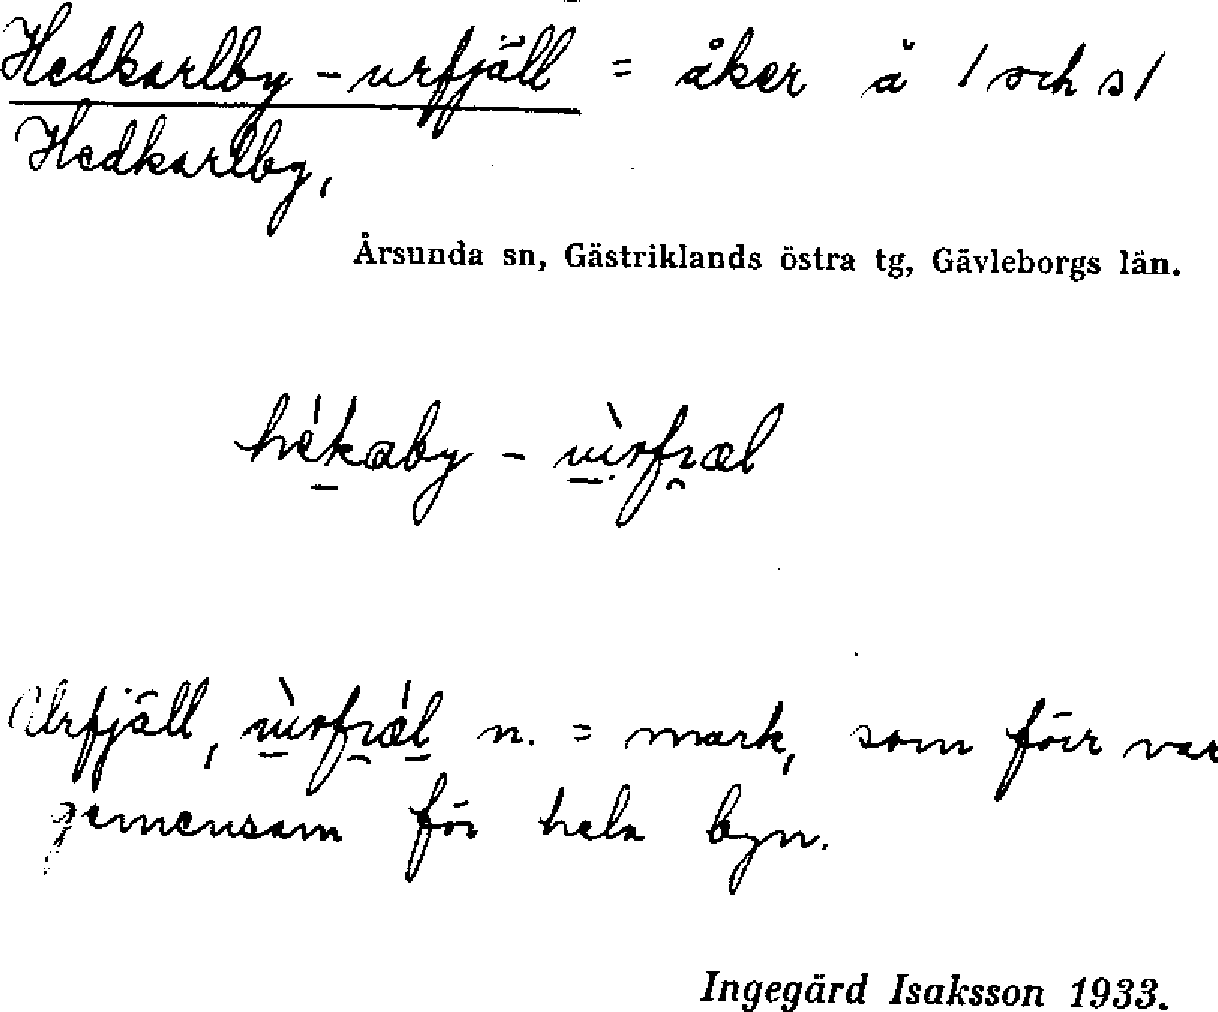 Hedkarlby - urfjäll = åker å / och s /
Hedkarlby,
Årsunda sn, Gästriklands östra tg, Gävleborgs län.
hékaby -
Urfjäll, n. = mark, som förr var
gemensam för hela byn.
Ingegärd Isaksson 1933.